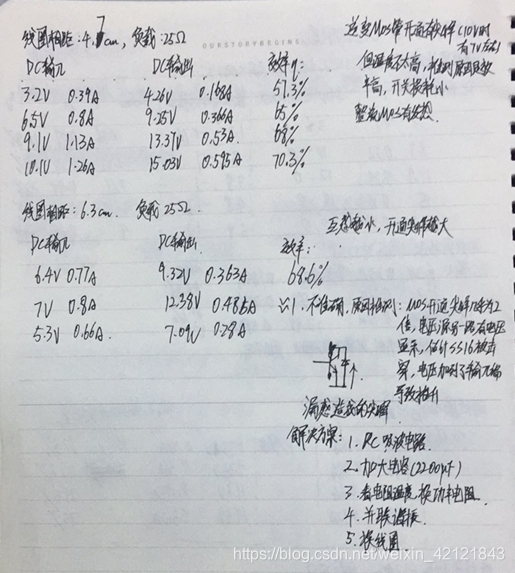 线圈相距:4.7cm,负载:25Ω
DC输入 DC输出 效率η:
3.2V 0.39A 4.26V 0.168A 57.3%
6.5V 0.8A 9.25V 0.366A 65%
9.1V 1.13A 13.37V 0.53A 68%
10.1V 1.26A 15.03V 0.595A 70.3%
逆变MOS管开通有尖峰(10V时
有7V左右)
但温度不太高,
率高,开关损耗小
整流MOS有发热.
线圈相距:6.3cm. 负载:25Ω.
互感越小,开通尖峰越大
DC输入 DC输出 效率:
6.4V 0.77A 9.32V 0.363A 68.6%
7V 0.8A 12.38V 0.485A
5.3V 0.66A 7.09V 0.28A
不准确,原因: MOS开通尖峰
倍,电压源另一路有电压
显示,估计SS16被击
穿,电压加到了输入端
导致抬升
漏感造成的尖峰
解决方案: 1. RC吸收电路.
2. 加大电容(2200μf)
3. 看电阻温度,换功率电阻.
4. 并联谐振.
5. 换线圈
https://blog.csdn.net/weixin_42121843